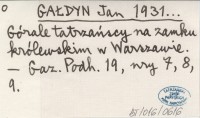 GAŁDYN Jan 1931...
Górale tatrzańscy na zamku
królewskim w Warszawie.
— Gaz. Podh. 19, nry 7, 8,
9.